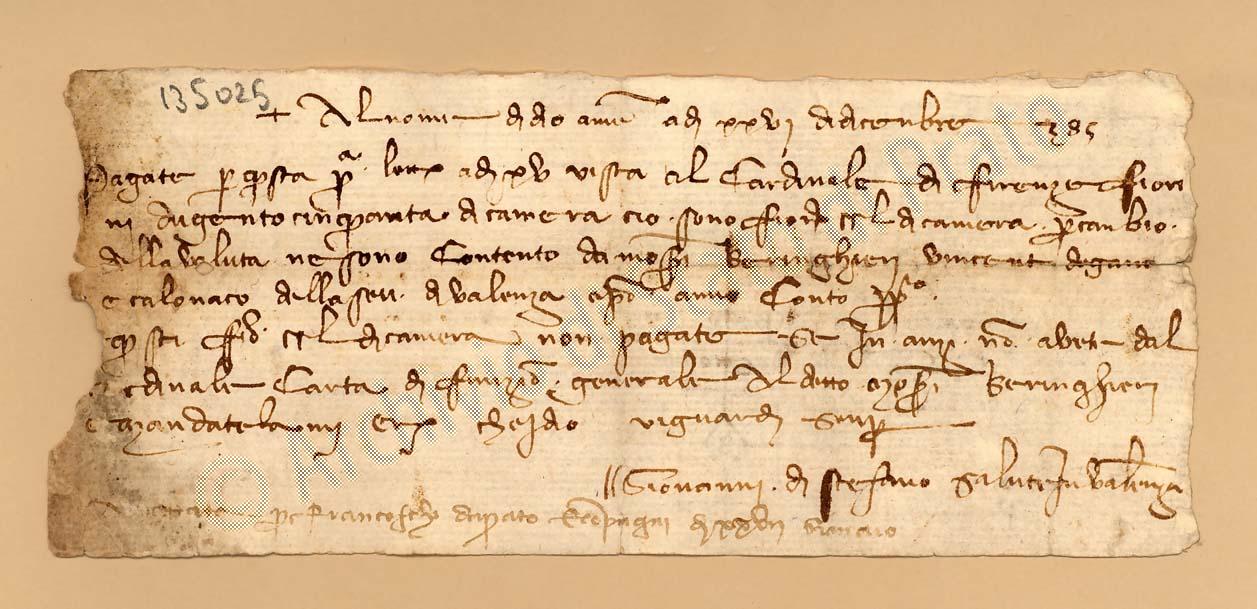 135025
+ Al nome di dio ame adi xxvi di dicenbre 385
Pagate per questa pª letera adi xv vista al Cardinale di Firenze fiori
ni dugentocinquanta di camera cio sono fior ccl di camera per canbio
della valuta ne sono Contento da mosser Beringhieri vincente
e calonaco della seu di valenza e Conto
questi fior ccl di camera non pagate se in anzi no avete dal
cardinale Carta di generale Al detto mosser Beringhieri
e Mandatelami che Idio vi guardi senpre
Giovanni di stefano salute In Valenza
per Francescho da prato e conpagni di xxvii
© Archivio di Stato di Prato